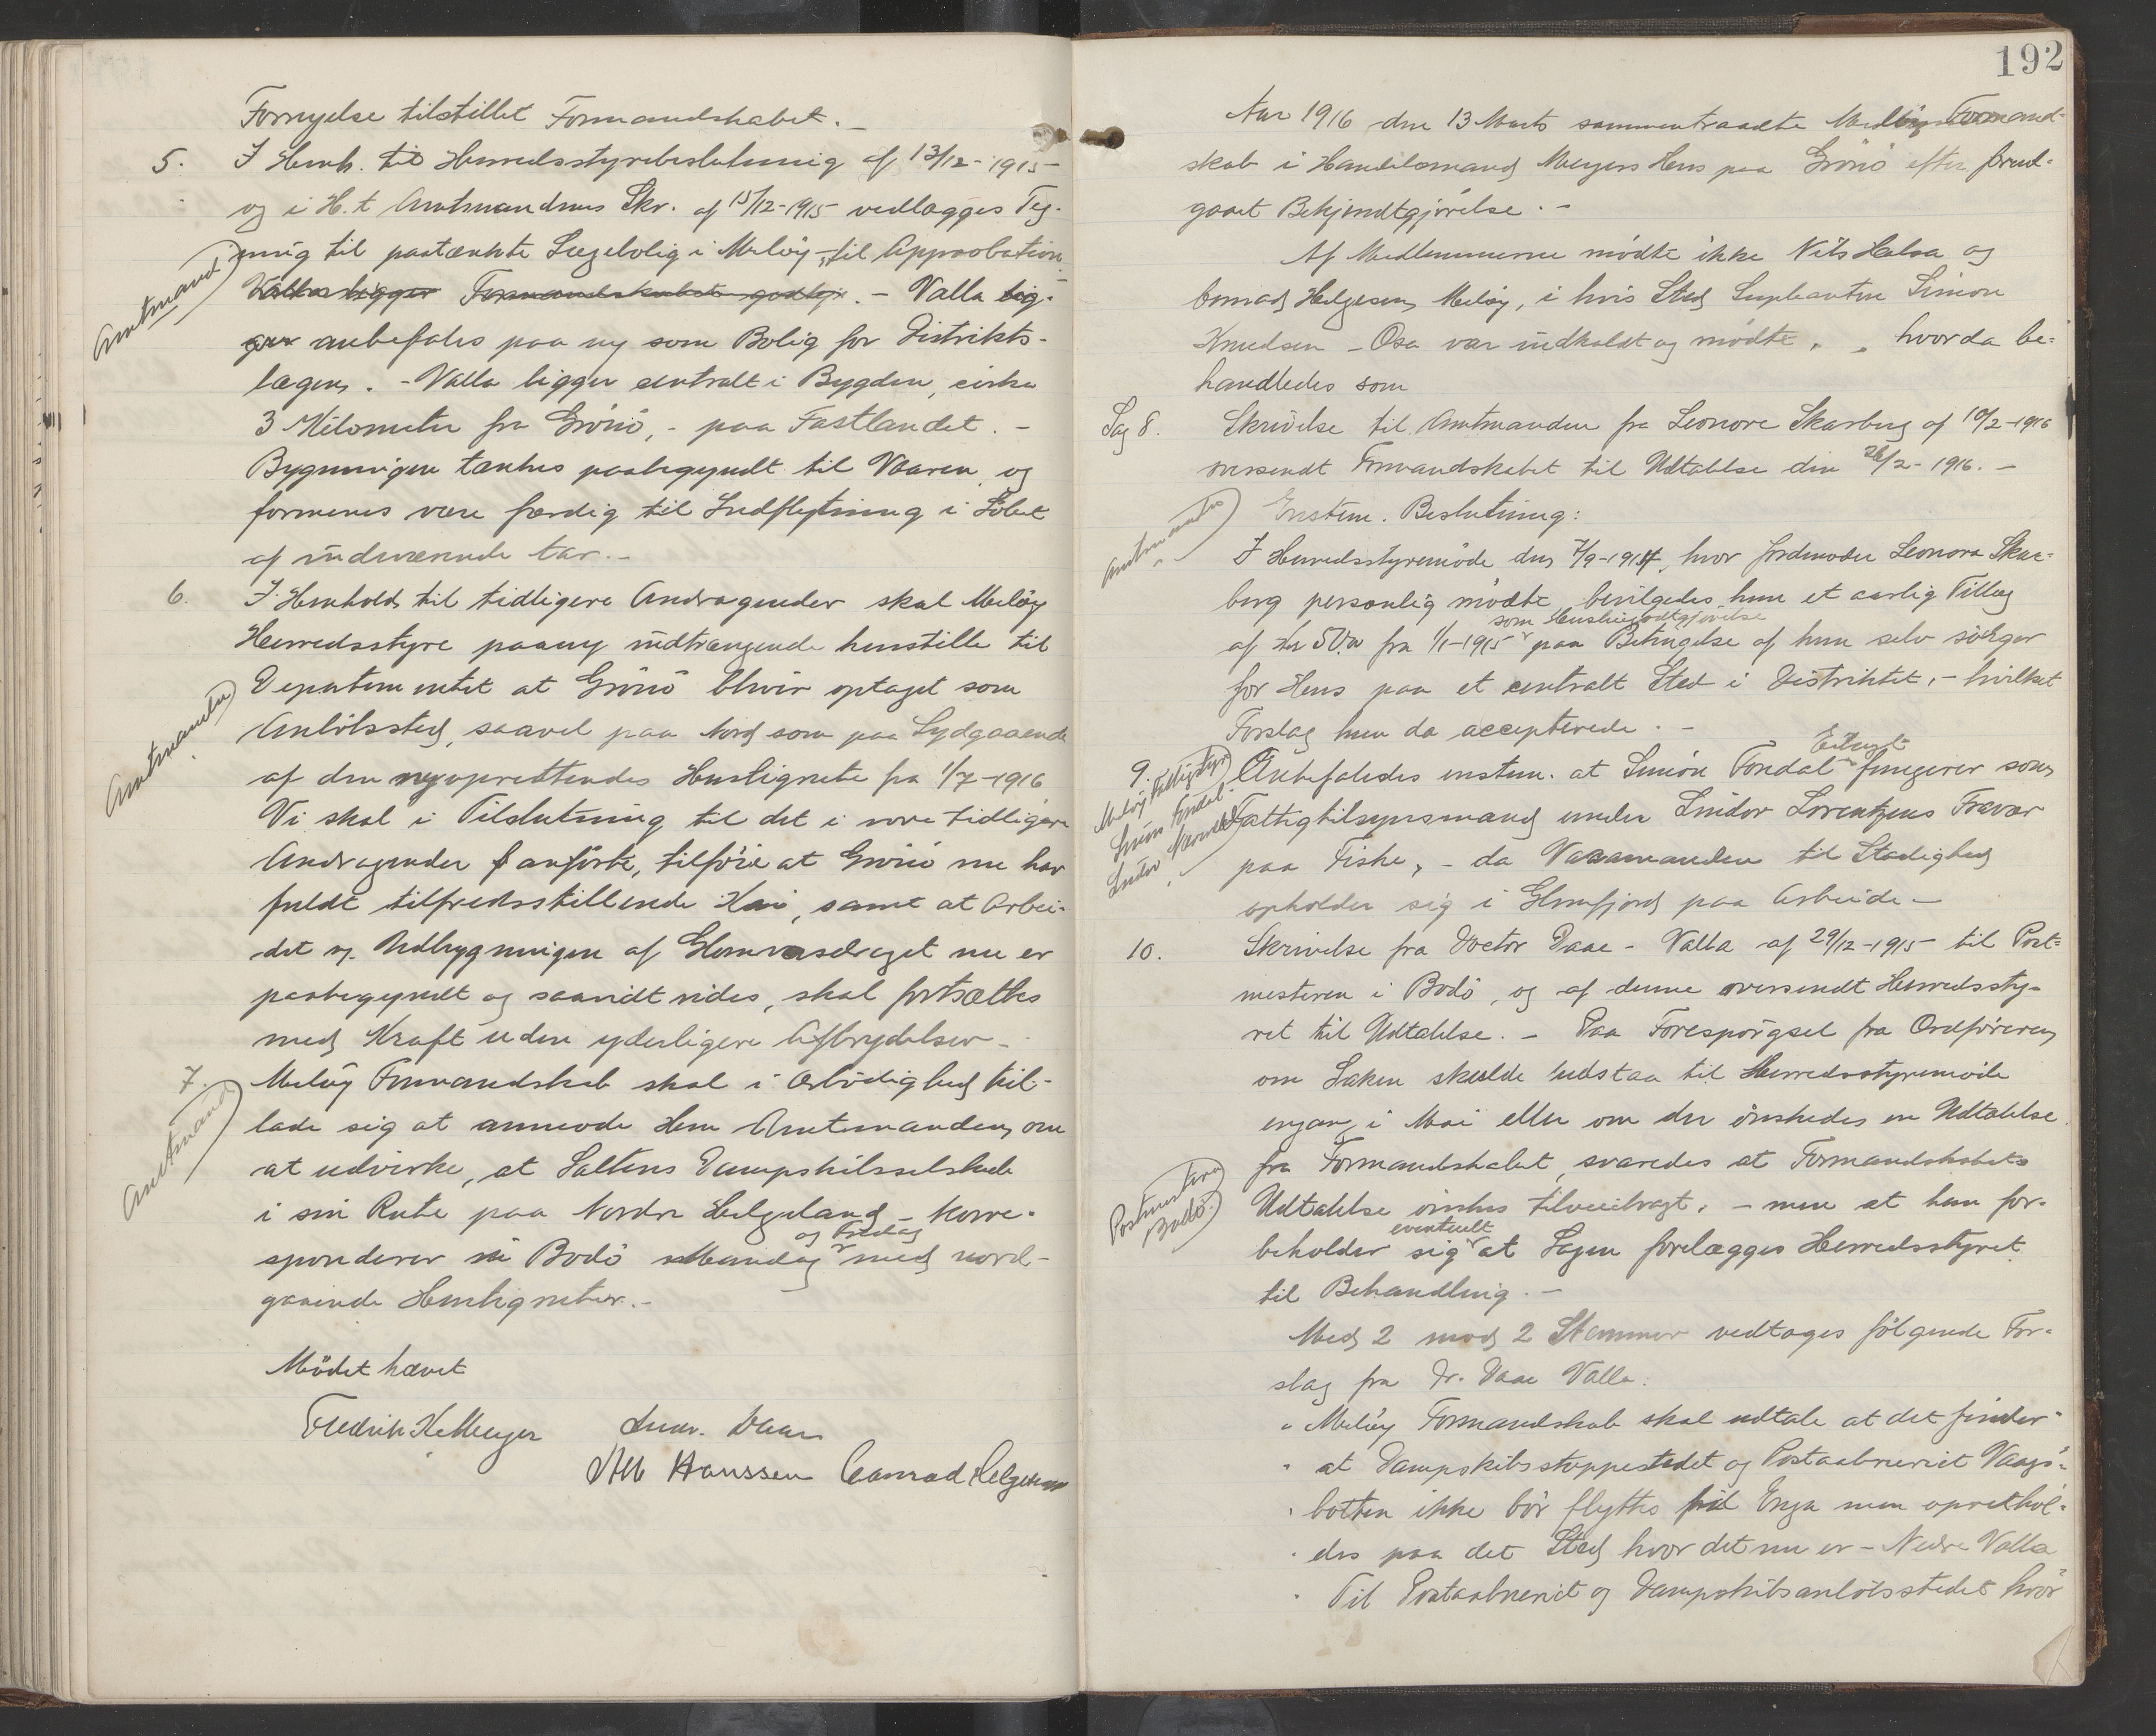 Fornyelse tilstillet Formandskabet. -
5. I Henh. til Herredsstyrebeslutning af 13/12-1915
og i H. t Amtmandens Skr. af 15/12-1915 vedlægges Teg-
ning til paatænkte Lægebolig i Meløy - til Approbation
Amtmand
Valla ligger Formandskabet godkj. - Valla lig-
ger anbefales paa ny som Bolig for Distrikts-
lægen. - Valla ligger centralt i Bygden, cirka
3 Kilometer fra Grönö, - paa Fastlandet. -
Bygningen tænkes paabegyndt til Vaaren og
formenes være færdig til Indflytning i Löbet
af indeværende Aar. -
6. I Henhold til tidligere Andragender skal Meløy
Herredsstyre paany indtrængende henstille til
Departementet at Grönö bliver optaget som
Amtmanden
Anlöbssted, saavel paa Nord som paa Sydgaaende
af den nyoprettendes Hurtigrute fra 1/7-1916
Vi skal i Tilslutning til det i vore tidligere
Andragender anförte, tilföie at Grönö nu har
fuldt tilfredsstillende Kai, samt at Arbei-
det m. Udbygningen af Glomvasdraget nu er
paabegyndt og saavidt vides, skal fortsættes
med Kraft uden yderligere Afbrydelser -
7. Meløy Formandskab skal i Ærbødighed til-
Amtmand
lade sig at anmode Herr Amtmanden, om
at udvirke, at Saltens Dampskibsselskab
i sin Rute paa Nordre Helgeland - korre-
og Fredag
sponderer i Bodö Mandag med nord-
gaaende Hurtigruter. -
Mödet hævet
Fredrik K Meyer Andr. Daae
Albt Hanssen Conrad Helgesen
192
Aar 1916 den 13 Marts sammentraadte Meløy Formand-
skab i Handelsmand Meyers Hus paa Grönö efter forud-
gaaet Bekjendtgjörelse. -
Af Medlemmerne mödte ikke Nils Halsa og
Conrad Helgesen, Meløy, i hvis Sted Suplianten Simon
Knudsen - Osa var indkaldt og mödte. hvorda be-
handledes som
Sag 8. Skrivelse til Amtmanden fra Leonore Skarberg af 10/2-1916
oversendt Formandskabet til Udtalelse den 26/2-1916. -
Amtmanden
Enstem. Beslutning:
I Herredsstyremöde den 7/9-1914, hvor Jordmoder Leonora Skar-
berg personlig mödte bevilgedes hun et aarlig Tillæg
som Husleiegodtgjörelse
af Kr 50.00 fra 1/1-1915 paa Betingelse af hun selv sörger
for Hus paa et centralt Sted i Distriktet, - hvilket
Forslag hun da accepterede. -
Edvard
9. Anbefaledes enstem. at Simon Fondal fungerer som
Meløy Fattigstyre
Simon Fondal
Sindor
Fattigtilsynsmand under Sindor Lorentzens Fravær
paa Fiske, - da Varamanden til Stadighed
opholder sig i Glomfjord paa Arbeide -
10. Skrivelse fra Doctor Daae - Valla af 29/12-1915 til Post-
mesteren i Bodö, og af denne oversendt Herredssty-
ret til Udtalelse. - Paa Forespörgsel fra Ordföreren
om Saken skulde udstaa til Herredsstyremöde
engang i Mai eller om der önskedes en Udtalelse
fra Formandskabet, svaredes at Formandskabets
Postmesteren
Bodö.
Udtalelse önskes tilveiebragt, - men at han for-
eventuelt
beholder sig at Sagen forelægges Herredsstyret
til Behandling. -
Med 2 mod 2 Stemmer vedtages fölgende For-
slag fra Dr. Daae Valla:
" Meløy Formandskab skal udtale at det finder
" at Dampskibsstoppestedet og Postaabneriet Vaags-
" botten ikke bör flyttes til Enga men oprethol-
" des paa det Sted hvor det nu er - Nedre Valla
" Til Postaabneriet og Dampskibsanlöbsstedet hvor